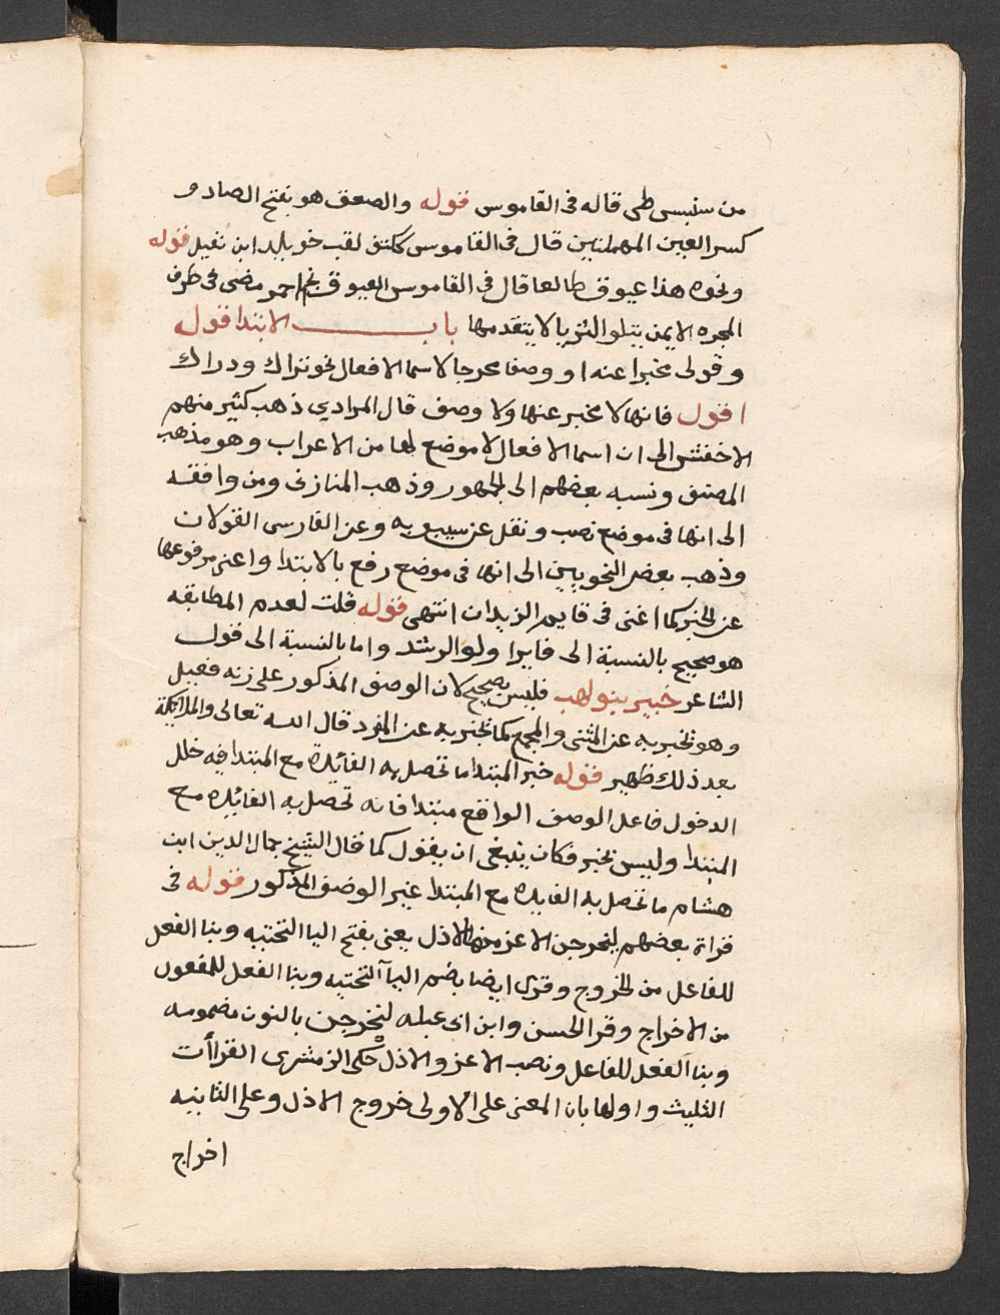 من سنبس طي قاله في القاموس قوله والصعق هو بفتح الصاد و
كسر العين المهملتين قال في القاموس ككتف لقب خويلد ابن نفيل قوله
ونحوه هذا عيوق طالعا قال في القاموس العيوق نجم احمر مضي في طرف
المجره الايمن يتلوا الثريا لا يتقدمها باب الابتدا قوله
وقولي مخبرا عنه او وصفا مخرجا لاسما الافعال نحو نزال ودراك
اقول فانها لا مخبر عنها ولا وصف قال المرادي ذهب كثير منهم
الاخفش الى ان اسما الافعال لا موضع لها من الاعراب وهو مذهب
المصنف ونسبه بعضهم الى الجمهور وذهب المازني ومن وافقه
الى انها في موضع نصب ونقل عن سيبويه وعن الفارسي القولان
وذهب بعض النحويين الى انها في موضع رفع بالابتدا واغنى مرفوعها
عن الخبر كما اغنى في قايم الزيدان انتهى قوله قلت لعدم المطابقه
هو صحيح بالنسبة الى فايزا ولو الرشد واما بالنسبة الى قول
الشاعر خبير بنو لهب فليس بصحيح لان الوصف المذكور على زنه فعيل
وهو تخبر به عن المثنى والجمع كما تخبر به عن المفرد قال الله تعالى والملائكة
بعد ذلك ظهير قوله خبر المبتدا ما تحصل به الفائدة مع المبتدا فيه خلل
الدخول فاعل الوصف الواقع مبتدا فانه تحصل به الفائده مع
المبتدا وليس بخبر فكان ينبغي ان يقول كما قال الشيخ جمال الدين ابن
هشام ما تحصل به الفايده مع المبتدا غير الوصف المذكور قوله في
قراة بعضهم ليخرجن الاعز منها الاذل يعني بفتح اليا التحتيه وبنا الفعل
للفاعل من الخروج وقري ايضا بضم اليآ التحتيه وبنا الفعل للمفعول
من الاخراج وقرا الحسن وابن ابي عبله لنخرجن بالنون مضمومه
وبنا الفعل للفاعل ونصب الاعز والاذل حكى الزمخشرى القراأت
الثليث واولها بان المعنى على الاولى خروج الاذل وعلى الثانيه
اخراج